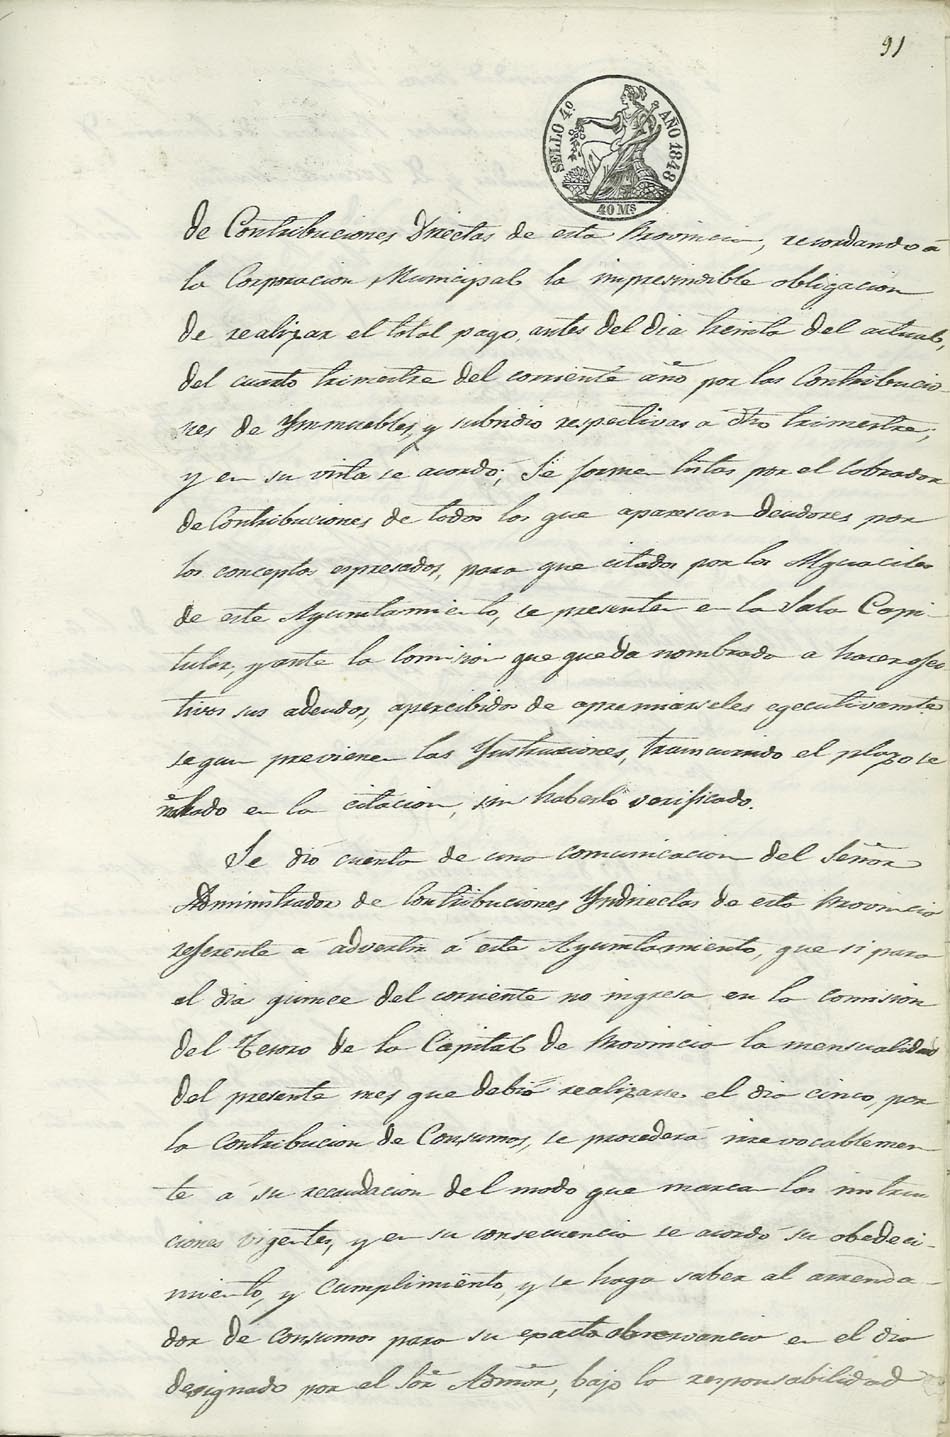 91
SELLO 4º AÑO 1848
40 Ms
de Contribuciones Directas de esta Provincia, recordando á
la Corporacion Municipal la impresindible obligacion
de realizar el total pago, antes del dia treinta del actual,
del cuarto trimestre del corriente año por las Contribucio
nes de Ynmuebles, y subsidio respectivas á dho trimestre;
y en su vista se acordó; Se formen listas por el Cobrador
de Contribuciones de todos los que aparescan deudores por
los conceptos espresados, para que citados por los Alguaciles
de este Ayuntamiento, se presenten en la Sala Capi-
tular, y ante la Comision que queda nombrada a hacer efec
tivos sus adeudos, apercibidos de apremiarseles egecutivamte.
segun previenen las Ynstrucciones, trancurrido el plazo se
ñalado en la citacion, sin haberlo verificado.
Se dió cuenta de una comunicacion del Señor
Administrador de Contribuciones Yndirectas de esta Provincia
referente á advertir á este Ayuntamiento, que si para
el dia quince del corriente no ingresa en la comision
del Tesoro de la Capital de Provincia la mensualidad
del presente mes que debió realizarse el dia cinco, por
la Contribucion de Consumos, se procederá irrevocablemen
te á su recaudacion del modo que marcan las instruc
ciones vigentes, y en su consecuencia se acordó su obedeci-
miento, y cumplimiento, y se haga saber al arrenda-
dor de Consumos para su exacta observancia en el dia
designado por el Sor Admor, bajo la responsabilidad